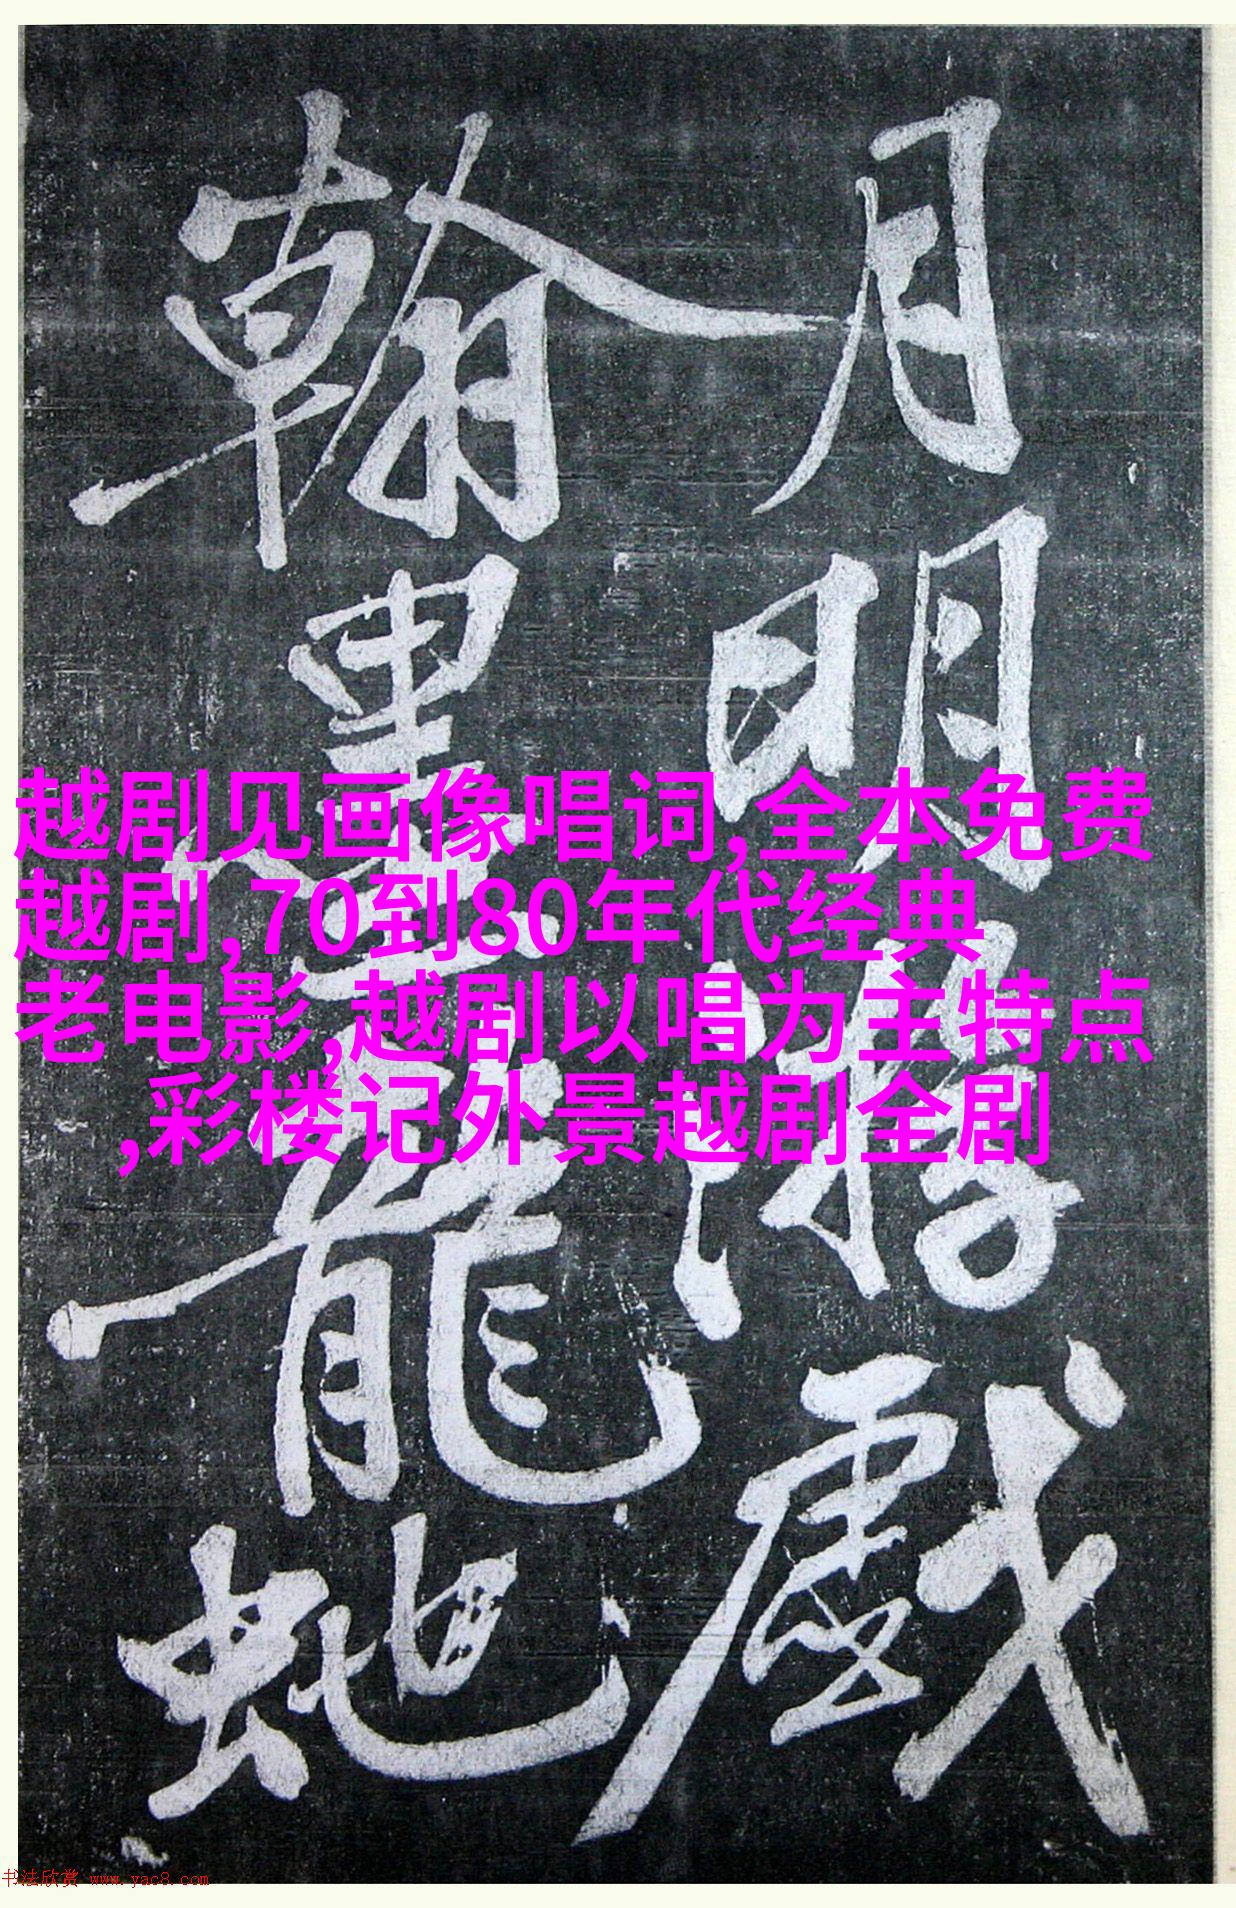 月明游戏
翰墨龍蛇
越剧见画像唱词,全本免费
越剧,70到80年代经典
老电影,越剧以唱为主特点
,彩楼记外景越剧全剧
书法欣赏 www.yac8.com